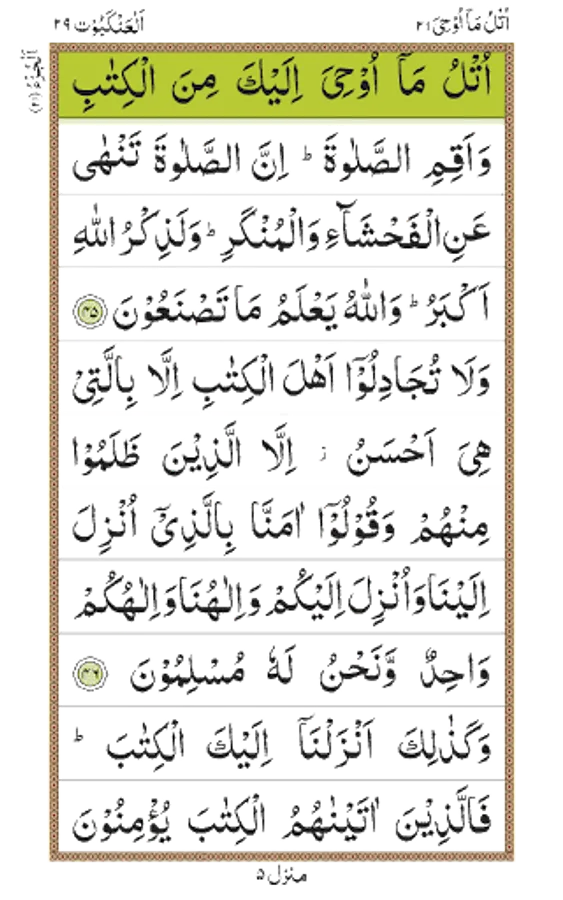 اَلْعَنْكَبُوْت ٢٩
اُتْلُ مَاۤ اُوْحِیَ ٢١
اَلْجُزْءُ (٢١)
اُتْلُ مَاۤ اُوْحِیَ اِلَیْكَ مِنَ الْكِتٰبِ
وَاَقِمِ الصَّلٰوةَ ؕ اِنَّ الصَّلٰوةَ تَنْهٰی
عَنِ الْفَحْشَآءِ وَالْمُنْكَرِ ؕ وَلَذِكْرُ اللّٰهِ
اَكْبَرُ ؕ وَاللّٰهُ یَعْلَمُ مَا تَصْنَعُوْنَ ﴿۴۵﴾
وَلَا تُجَادِلُوْۤا اَهْلَ الْكِتٰبِ اِلَّا بِالَّتِیْ
هِیَ اَحْسَنُ ز اِلَّا الَّذِیْنَ ظَلَمُوْا
مِنْهُمْ وَقُوْلُوْۤا اٰمَنَّا بِالَّذِیْۤ اُنْزِلَ
اِلَیْنَا وَاُنْزِلَ اِلَیْكُمْ وَاِلٰهُنَا وَاِلٰهُكُمْ
وَاحِدٌ وَّنَحْنُ لَهٗ مُسْلِمُوْنَ ﴿۴۶﴾
وَكَذٰلِكَ اَنْزَلْنَاۤ اِلَیْكَ الْكِتٰبَ ؕ
فَالَّذِیْنَ اٰتَیْنٰهُمُ الْكِتٰبَ یُؤْمِنُوْنَ
منزل ۵